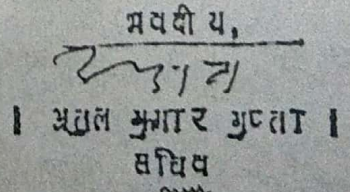 भवदीय,
। अतुल कुमार गुप्ता ।
सचिव